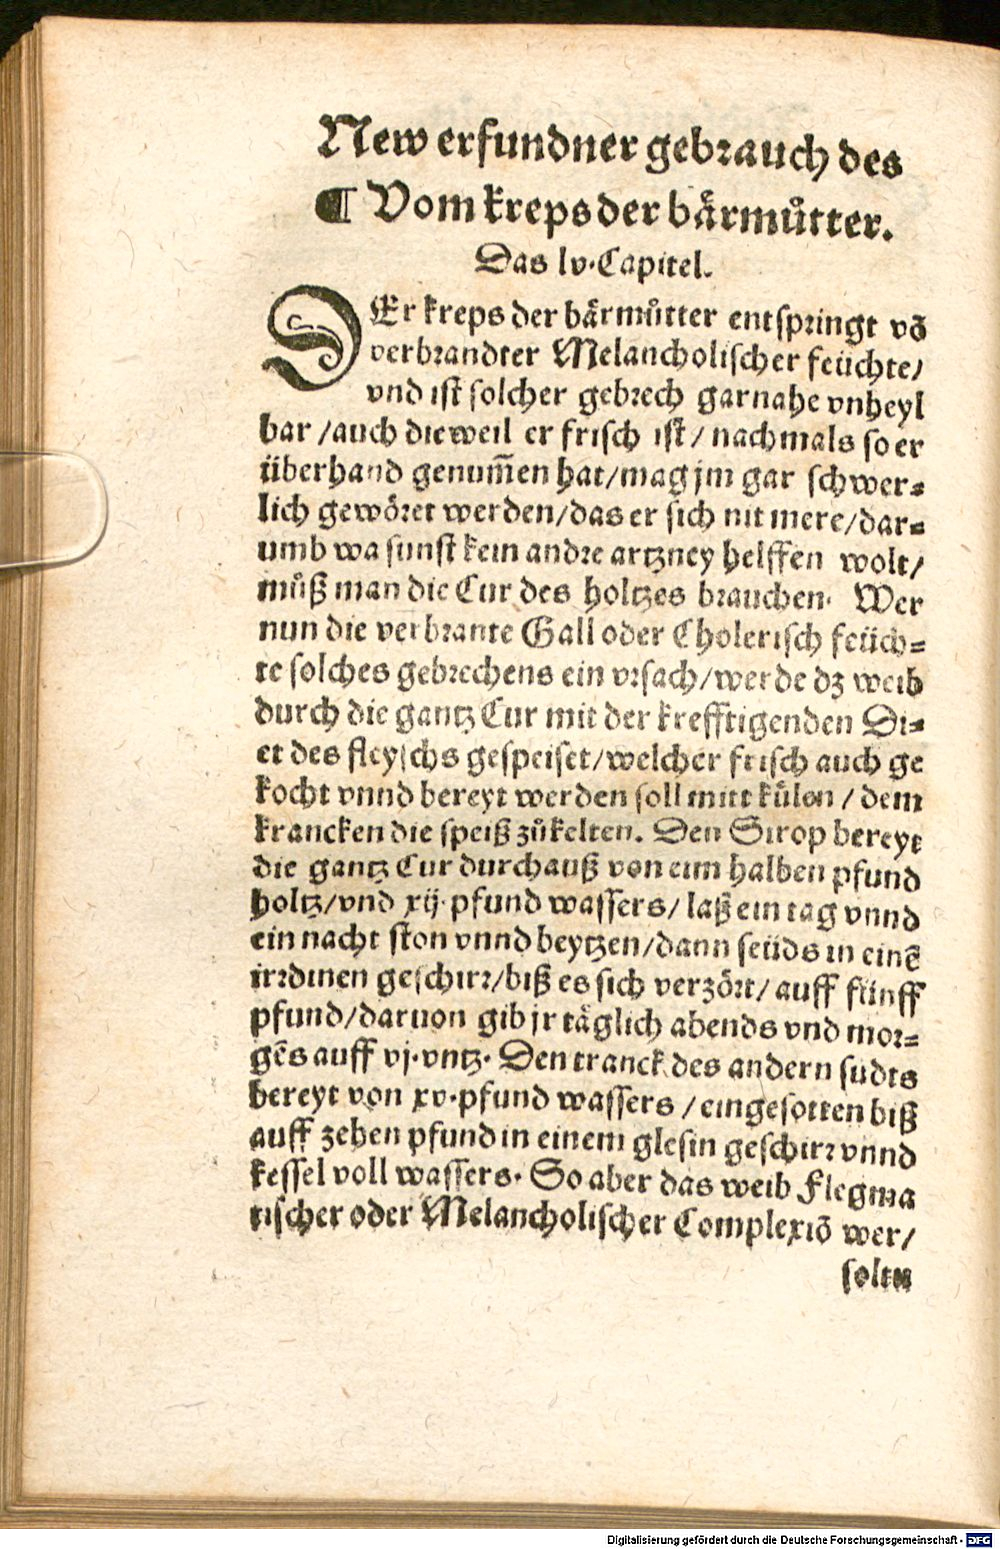 New erfundner gebrauch des
¶ Vom kreps der bärmůtter.
Das lv. Capitel.
DEr kreps der bärmůtter entspringt võ
verbrandter Melancholischer feüchte/
vnd ist solcher gebrech garnahe vnheyl
bar /auch dieweil er frisch ist/ nachmals so er
überhand genum̃en hat/mag jm gar schwer-
lich gewöret werden/das er sich nit mere/dar-
umb wa sunst kein andre artzney helffen wolt/
můß man die Cur des holtzes brauchen. Wer
nun die verbrante Gall oder Cholerisch feüch-
te solches gebrechens ein vrsach/werde dz weib
durch die gantz Cur mit der krefftigenden Di-
et des fleyschs gespeiset/welcher frisch auch ge
kocht vnnd bereyt werden soll mitt külen / dem
krancken die speiß zůkelten. Den Sirop bereyt
die gantz Cur durchauß von eim halben pfund
holtz/vnd xij. pfund wassers/ laß ein tag vnnd
ein nacht ston vnnd beytzen/dann seüds in einẽ
irrdinen geschirr/biß es sich verzört/ auff fünff
pfund/daruon gib jr täglich abends vnd mor-
gẽs auff vj. vntz. Den tranck des andern sudts
bereyt von xv. pfund wassers /eingesotten biß
auff zehen pfund in einem glesin geschirr vnnd
kessel voll wassers. So aber das weib Flegma
tischer oder Melancholischer Complexiõ wer/
soltu
Digitalisierung gefördert durch die Deutsche Forschungsgemeinschaft - DFG